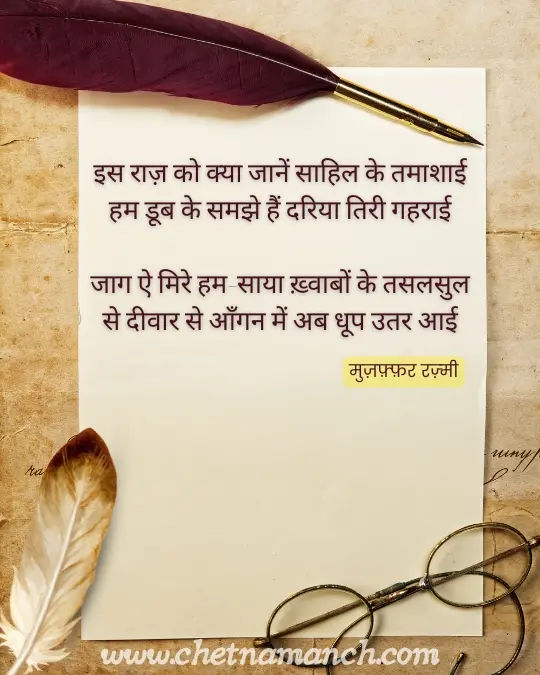 इस राज़ को क्या जानें साहिल के तमाशाई
हम डूब के समझे हैं दरिया तिरी गहराई
जाग ऐ मिरे हम-साया ख़्वाबों के तसलसुल
से दीवार से आँगन में अब धूप उतर आई
मुज़फ़्फ़र रज़्मी
www.chetnamanch.com